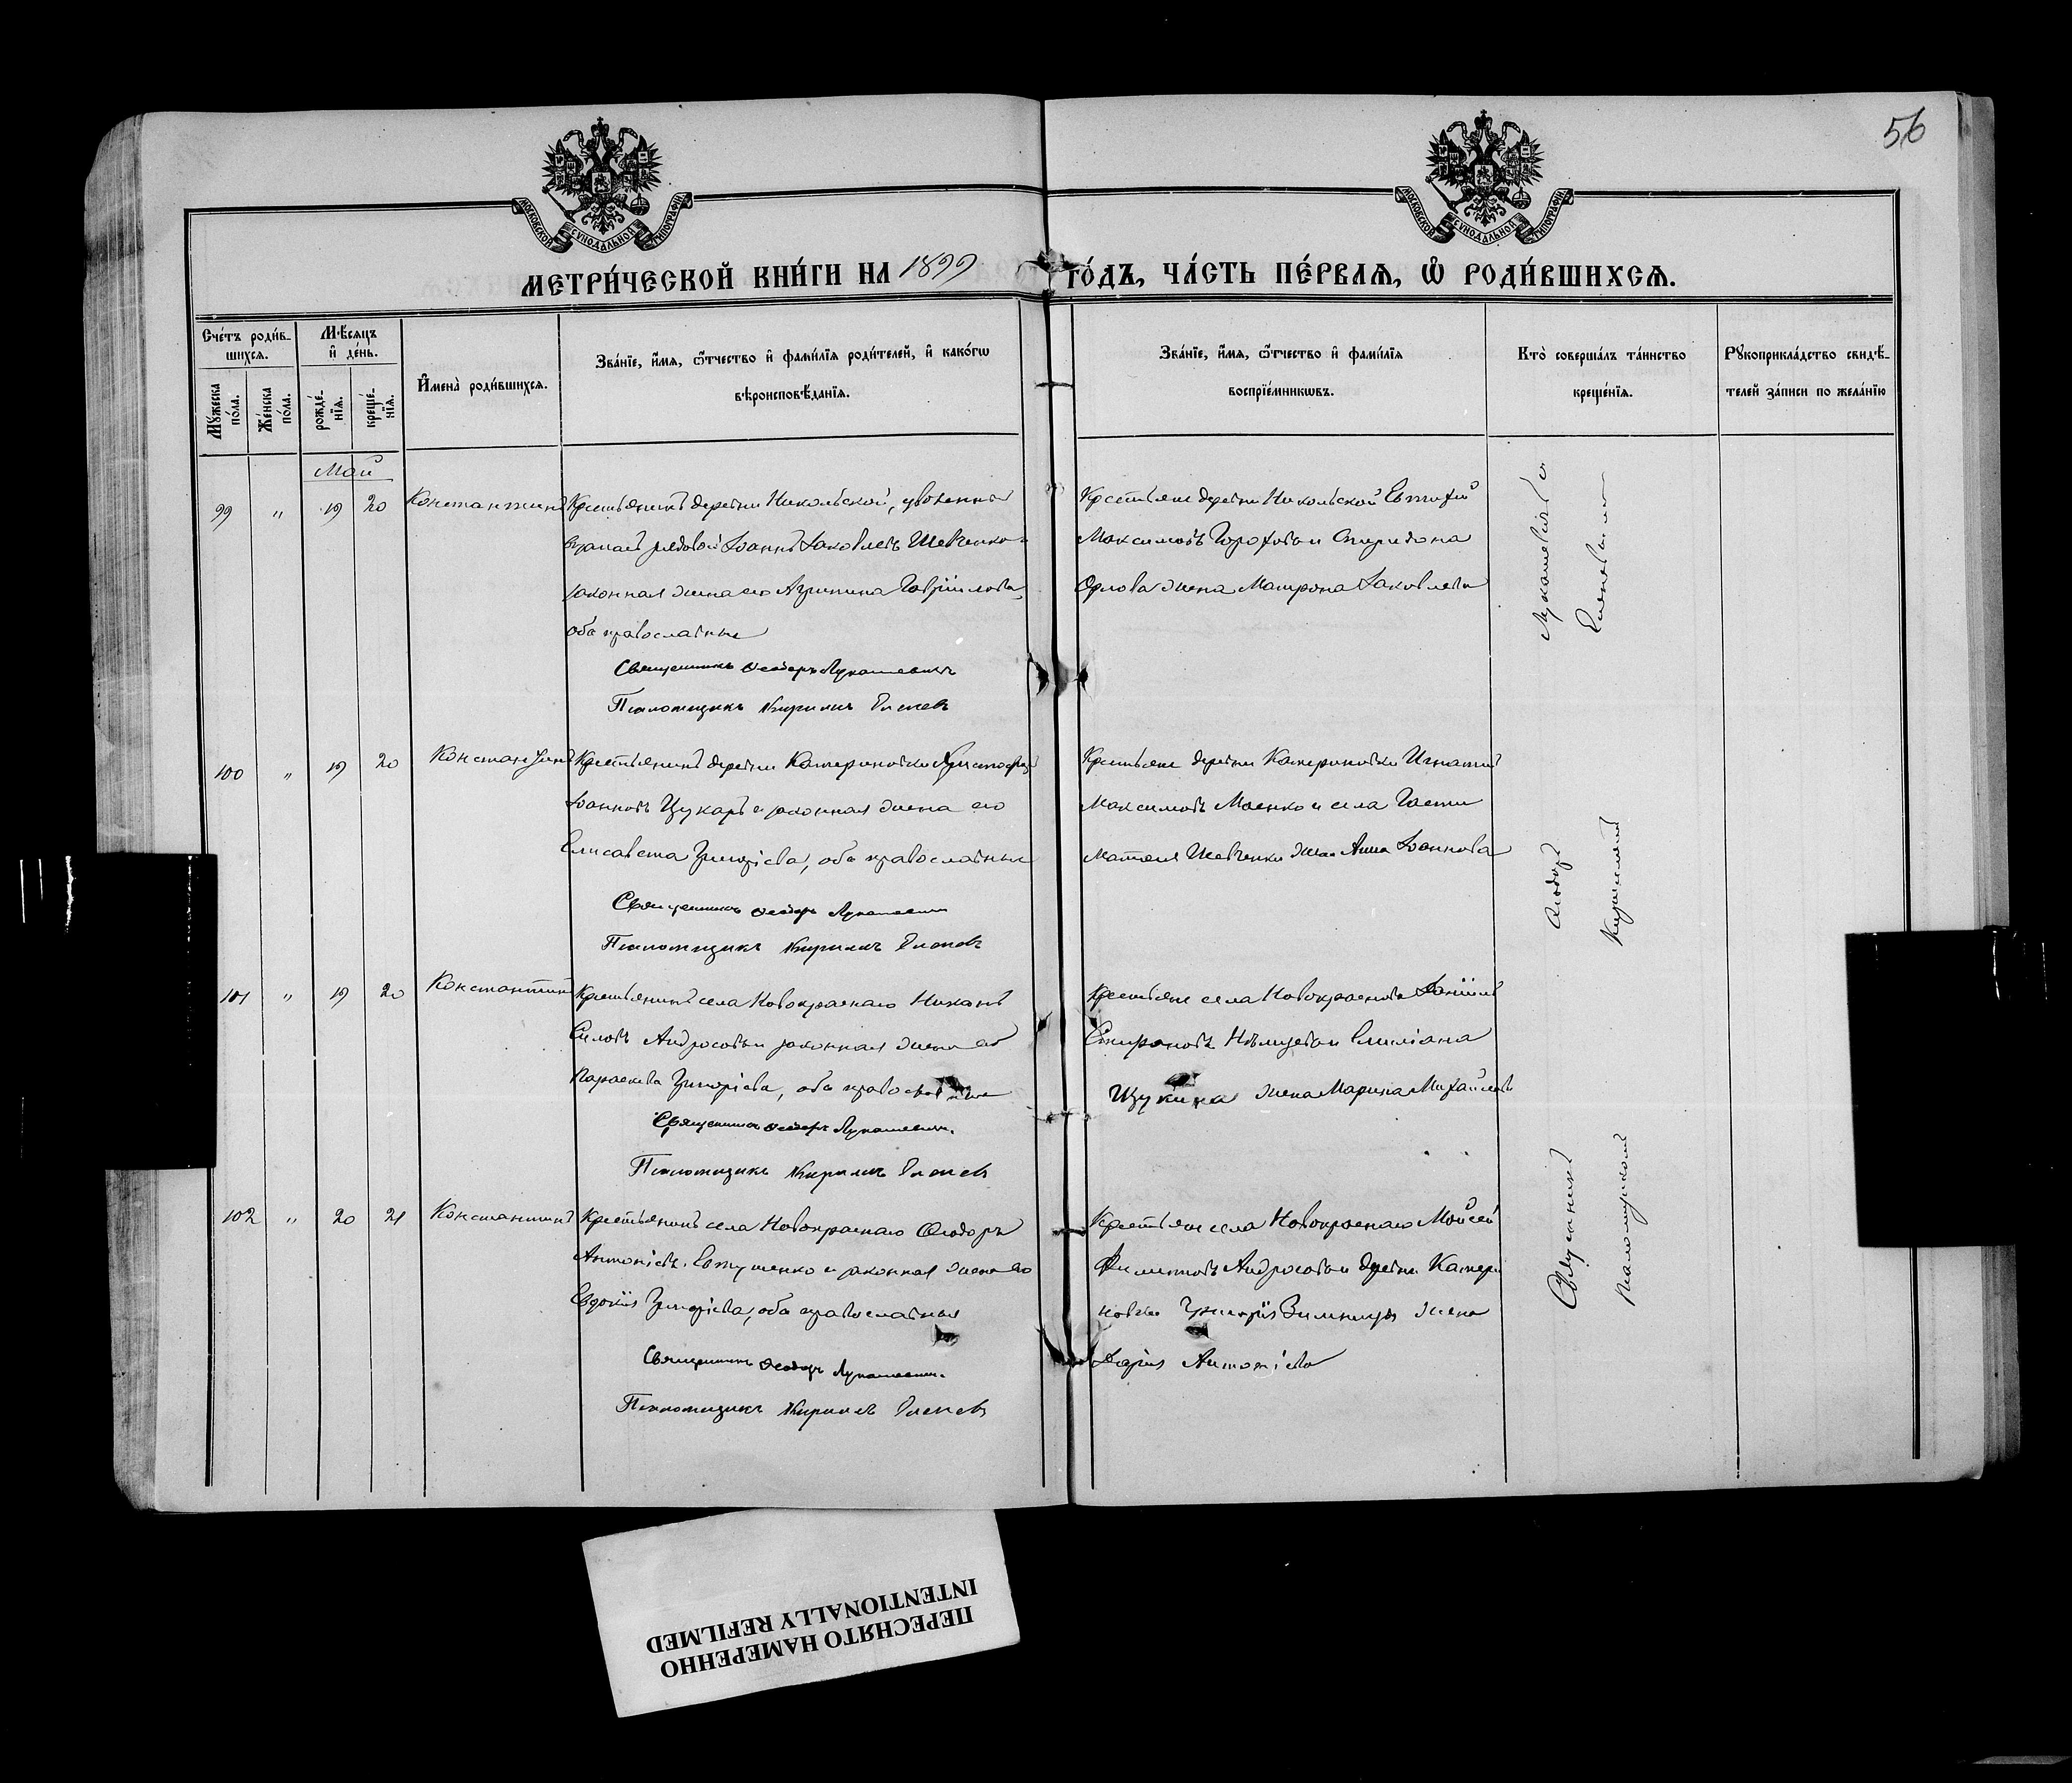 56
МОСКОВСКОЙ СѴНОДАЛЬНОЙ ТИПОГРАФІИ
МОСКОВСКОЙ СѴНОДАЛЬНОЙ ТИПОГРАФІИ
МЕТРИ́ЧЕСКОЙ КНИ́ГИ НА 1899 ГО́ДЪ, ЧА́СТЬ ПЕ́РВАѦ, Ѽ РОДИ́ВШИХСѦ.
Сче́тъ роди́в-
шихсѧ.
Мꙋ́жеска
по́ла.
Же́нска
по́ла.
Мѣ́сѧцъ
и҆ де́нь.
рожде́-
нїѧ.
креще́-
нїѧ.
И҆мена̀ роди́вшихсѧ.
Зва́нїе, и҆́мѧ, ѻ҆́тчество и҆ фами́лїѧ роди́телей, и҆ како́гѡ
вѣроисповѣ́данїѧ.
Зва́нїе, и҆́мѧ, ѻ҆́тчество и҆ фами́лїѧ
воспрїе́мникѡвъ.
Кто̀ соверша́лъ та́инство
креще́нїѧ.
Рꙋкоприкла́дство свидѣ́-
телей за́писи по жела́нїю
Май
99 " 19 20 Константинъ
Крестьянинъ деревни Никольской, уволенный
въ запасъ рядовой Іоаннъ Іаковлевъ Шевченко и
законная жена его Агрипина Гавріилова,
оба православные
Священникъ Ѳеодоръ Лукашевичъ
Псаломщикъ Кириллъ
Крестьяне деревни Никольской Евтихій
Максимовъ Гороховъ и Спиридона
Орлова жена Матрона Іаковлева
100 " 19 20 Константинъ
Крестьянинъ деревни Катериновки Христофоръ
Іоанновъ Цукаръ и законная жена его
Елисавета Григоріева, оба православные
Священникъ Ѳеодоръ Лукашевичъ
Псаломщикъ Кириллъ
Крестьяне деревни Катериновки Игнатій
Максимовъ Моенко и села
Матвея Шевченки жена Анна Іоаннова
101 " 19 20 Константинъ
Крестьянинъ села Новокраснаго Никонъ
Силовъ Андросовъ и законная жена его
Параскева Григоріева, оба православные
Священникъ Ѳеодоръ Лукашевичъ.
Псаломщикъ Кириллъ
Крестьяне села Новокраснаго Даніилъ
Спиридоновъ Нѣмцевъ и Емиліана
Щукина жена Марина Михайлова
102 " 20 21 Константинъ
Крестьянинъ села Новокраснаго Ѳеодоръ
Антоніевъ Евтушенко и законная жена его
Евдокія Григоріева, оба православные
Священникъ Ѳеодоръ Лукашевичъ.
Псаломщикъ Кириллъ
Крестьяне села Новокраснаго Мойсей
Филиповъ Андросовъ и деревни Катери
новки Григорія Зимницы жена
Дарія Антоніева
Священникъ Ѳеодоръ Лукашевичъ съ
Псаломщикомъ Кирилломъ
ПЕРЕСНЯТО НАМЕРЕННО
INTENTIONALLY REFILMED